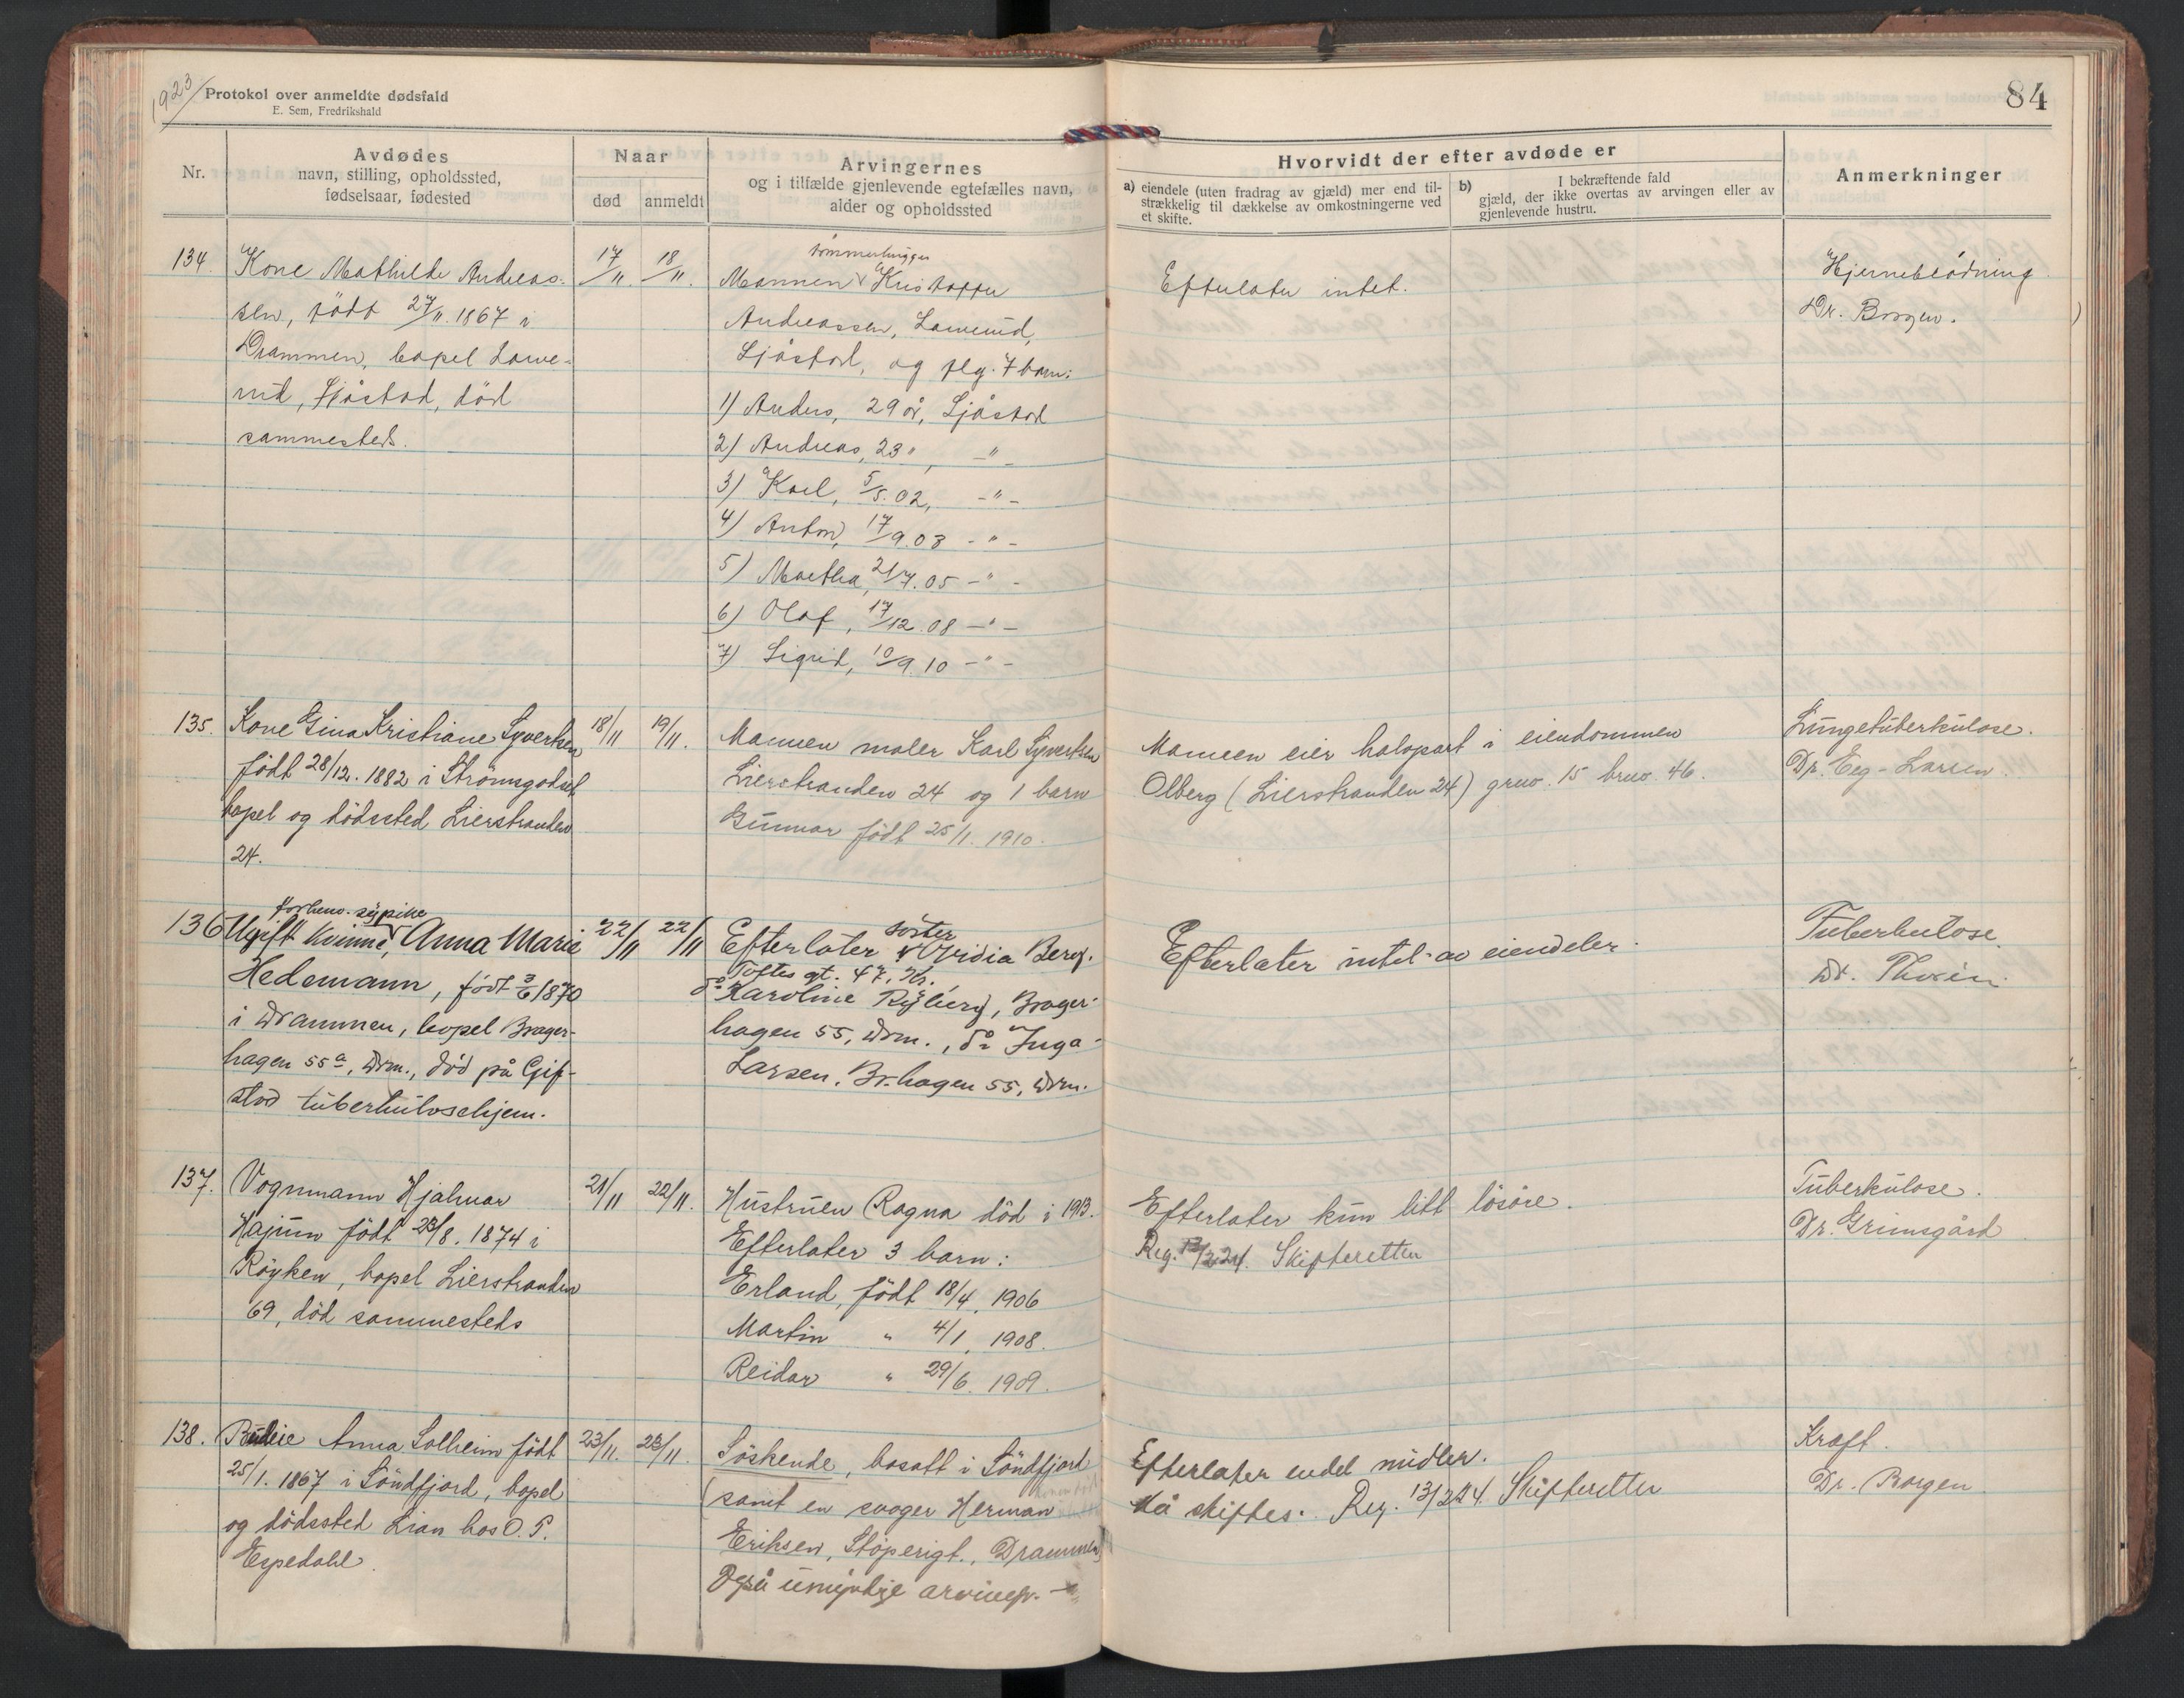 1923
Protokol over anmeldte dødsfald
E. Sem, Fredrikshald
84
Nr.
Avdødes
navn, stilling, opholdssted,
fødselsaar, fødested
Naar
død
anmeldt
Arvingernes
og i tilfælde gjenlevende egtefælles navn,
alder og opholdssted
Hvorvidt der efter avdøde er
a) eiendele (uten fradrag av gjæld) mer end til-
strækkelig til dækkelse av omkostningerne ved
et skifte.
b) I bekræftende fald
gjæld, der ikke overtas av arvingen eller av
gjenlevende hustru.
Anmerkninger
134.
Kone Mathilde Andreas-
sen, født 27/11. 1867 i
Drammen, bopel Lawe-
rud, Sjåstad, død
sammesteds.
17/11.
18/11.
tømmerhugger
Mannen Kristoffer
Andreassen, Lawerud,
Sjåstad, og flg. 7 barn:
1) Anders, 29 år, Sjåstad
2) Andreas, 23 " , - " -
3) Karl, 5/5. 02, - " -
4) Anton, 17/9. 03 - " -
5) Martha, 21/7. 05 - " -
6) Olaf, 17/12. 08 - " -
7) Sigrid, 10/9. 10 - " -
Efterlater intet.
Hjerneblødning
Dr. Borgen.
135.
Kone Gina Kristiane Syvertsen
født 28/12. 1882 i Strømsgodset
bopel og dødssted Lierstranden
24.
18/11
19/11.
Mannen maler Karl Syvertsen
Lierstranden 24 og 1 barn
Gunnar født 25/11. 1910.
Mannen eier halvpart i eiendommen
Olberg (Lierstranden 24) grno. 15 brno. 46.
Lungetuberkulose.
Dr. Eeg-Larsen.
136
forhenv. sypike
Ugift kvinne, Anna Marie
Hedemann, født 3/6 1870
i Drammen, bopel Brager-
hagen 55a, Drm., død på Gif-
stad tuberkulosehjem.
22/11
22/11
søster
Efterlater Ovidia Berg.
Toftes gt. 47. Kr.
do Karoline Ryberg, Brager-
hagen 55, Drm., do Inga
Larsen, Br.hagen 55, Drm.
Efterlater intet av eiendeler.
Tuberkulose.
Dr. Thorén.
137.
Vognmann Hjalmar
Hajum født 23/8. 1874 i
Røyken, bopel Lierstranden
69, død sammesteds
21/11
22/11.
Hustruen Ragna død i 1913.
Efterlater 3 barn:
Erland, født 18/4. 1906
Martin " 4/1. 1908.
Reidar " 29/6. 1909.
Efterlater kun litt løsøre.
Reg. 13/2 24. Skifteretten
Tuberkulose.
Dr. Grimsgård
138.
Budeie Anna Solheim født
25/1. 1867 i Søndfjord, bopel
og dødssted Lian hos O. P.
Espedahl.
23/11.
23/11.
Søskende, bosatt i Søndfjord
samt en svoger Herman
Eriksen, Støperigt., Drammen
Også umyndige arvinger.
Efterlater endel midler.
Må skiftes. Reg. 13/2 24. Skifteretten
Kræft.
Dr. Borgen